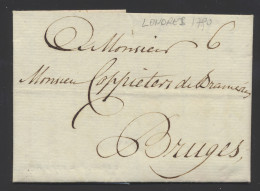 LONDRES 1790
A Monsieur 6
Monsieur Coppieters de
Bruges